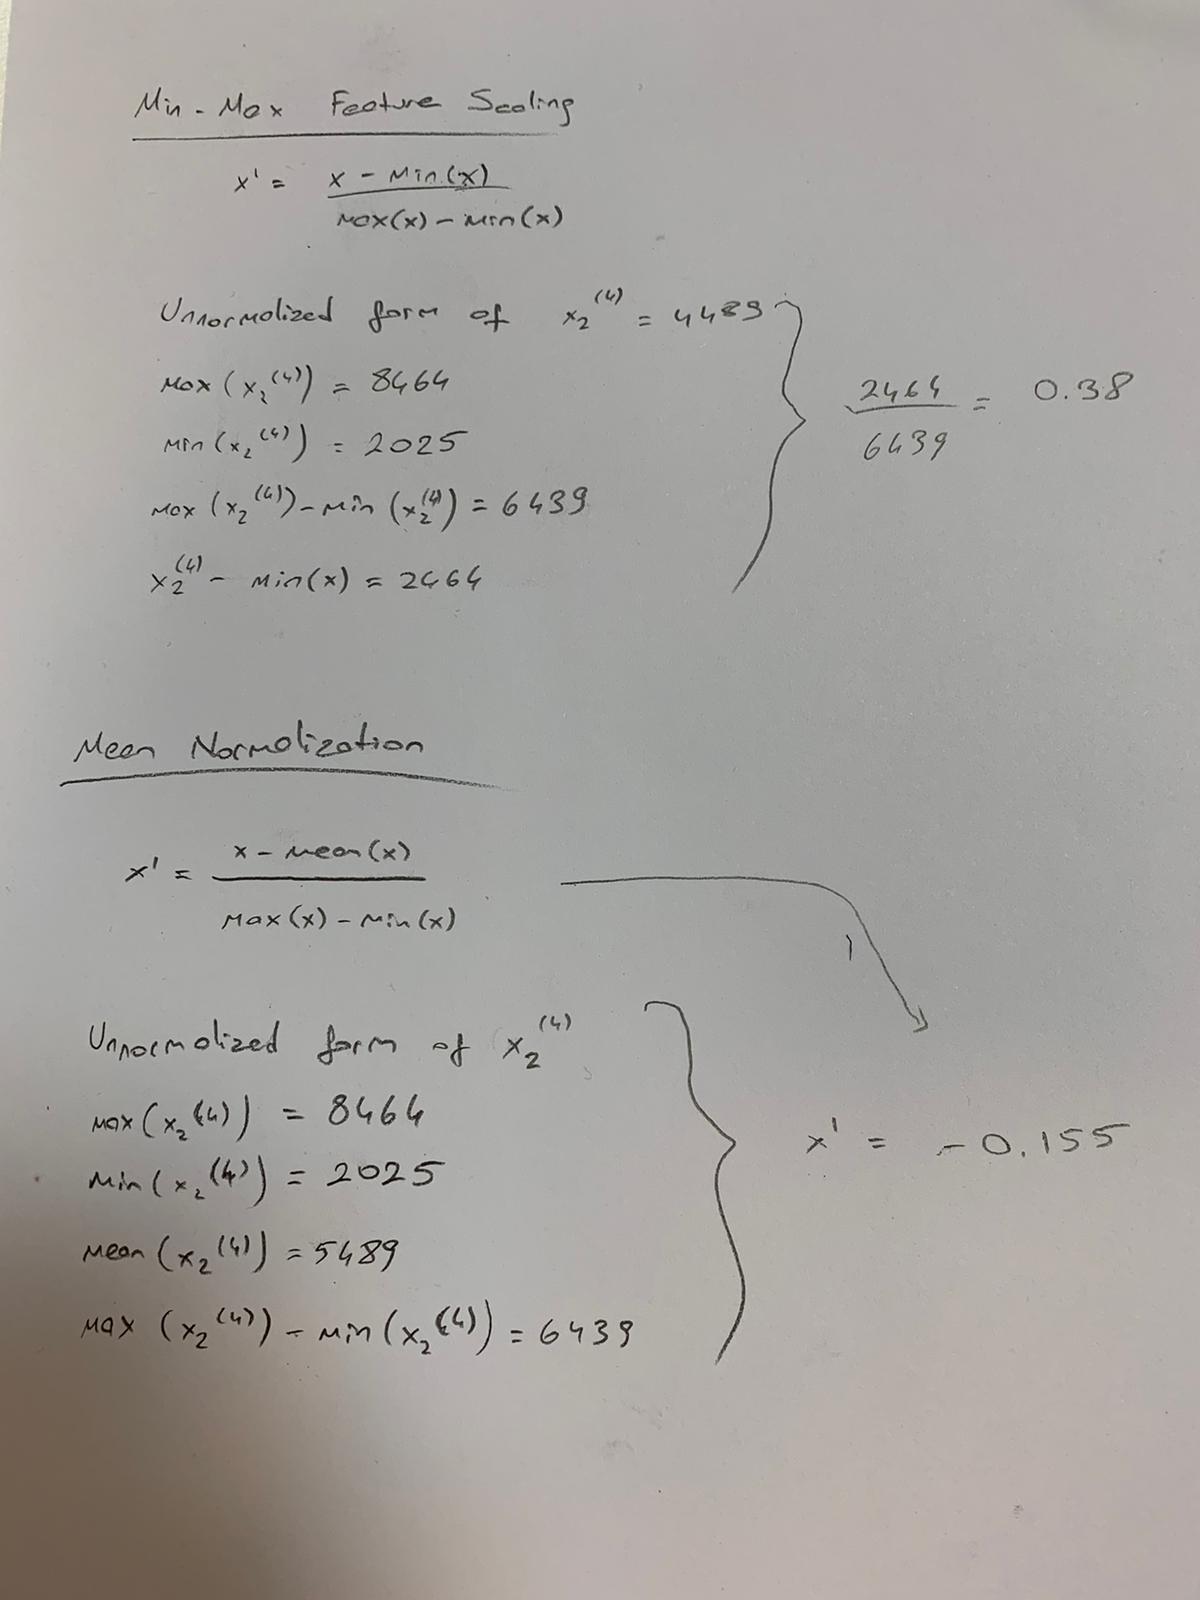 Min-Max Feature Scaling
x' = x - Min(x)
Max(x) - Min(x)
Unnormalized form of x₂⁽⁴⁾ = 4489
Max(x₂⁽⁴⁾) = 8464
Min(x₂⁽⁴⁾) = 2025
Max(x₂⁽⁴⁾) - Min(x₂⁽⁴⁾) = 6439
x₂⁽⁴⁾ - Min(x) = 2464
2464 = 0.38
6439
Mean Normalization
x' = x - Mean(x)
Max(x) - Min(x)
Unnormalized form of x₂⁽⁴⁾
Max(x₂⁽⁴⁾) = 8464
Min(x₂⁽⁴⁾) = 2025
Mean(x₂⁽⁴⁾) = 5489
Max(x₂⁽⁴⁾) - Min(x₂⁽⁴⁾) = 6439
x' = -0.155